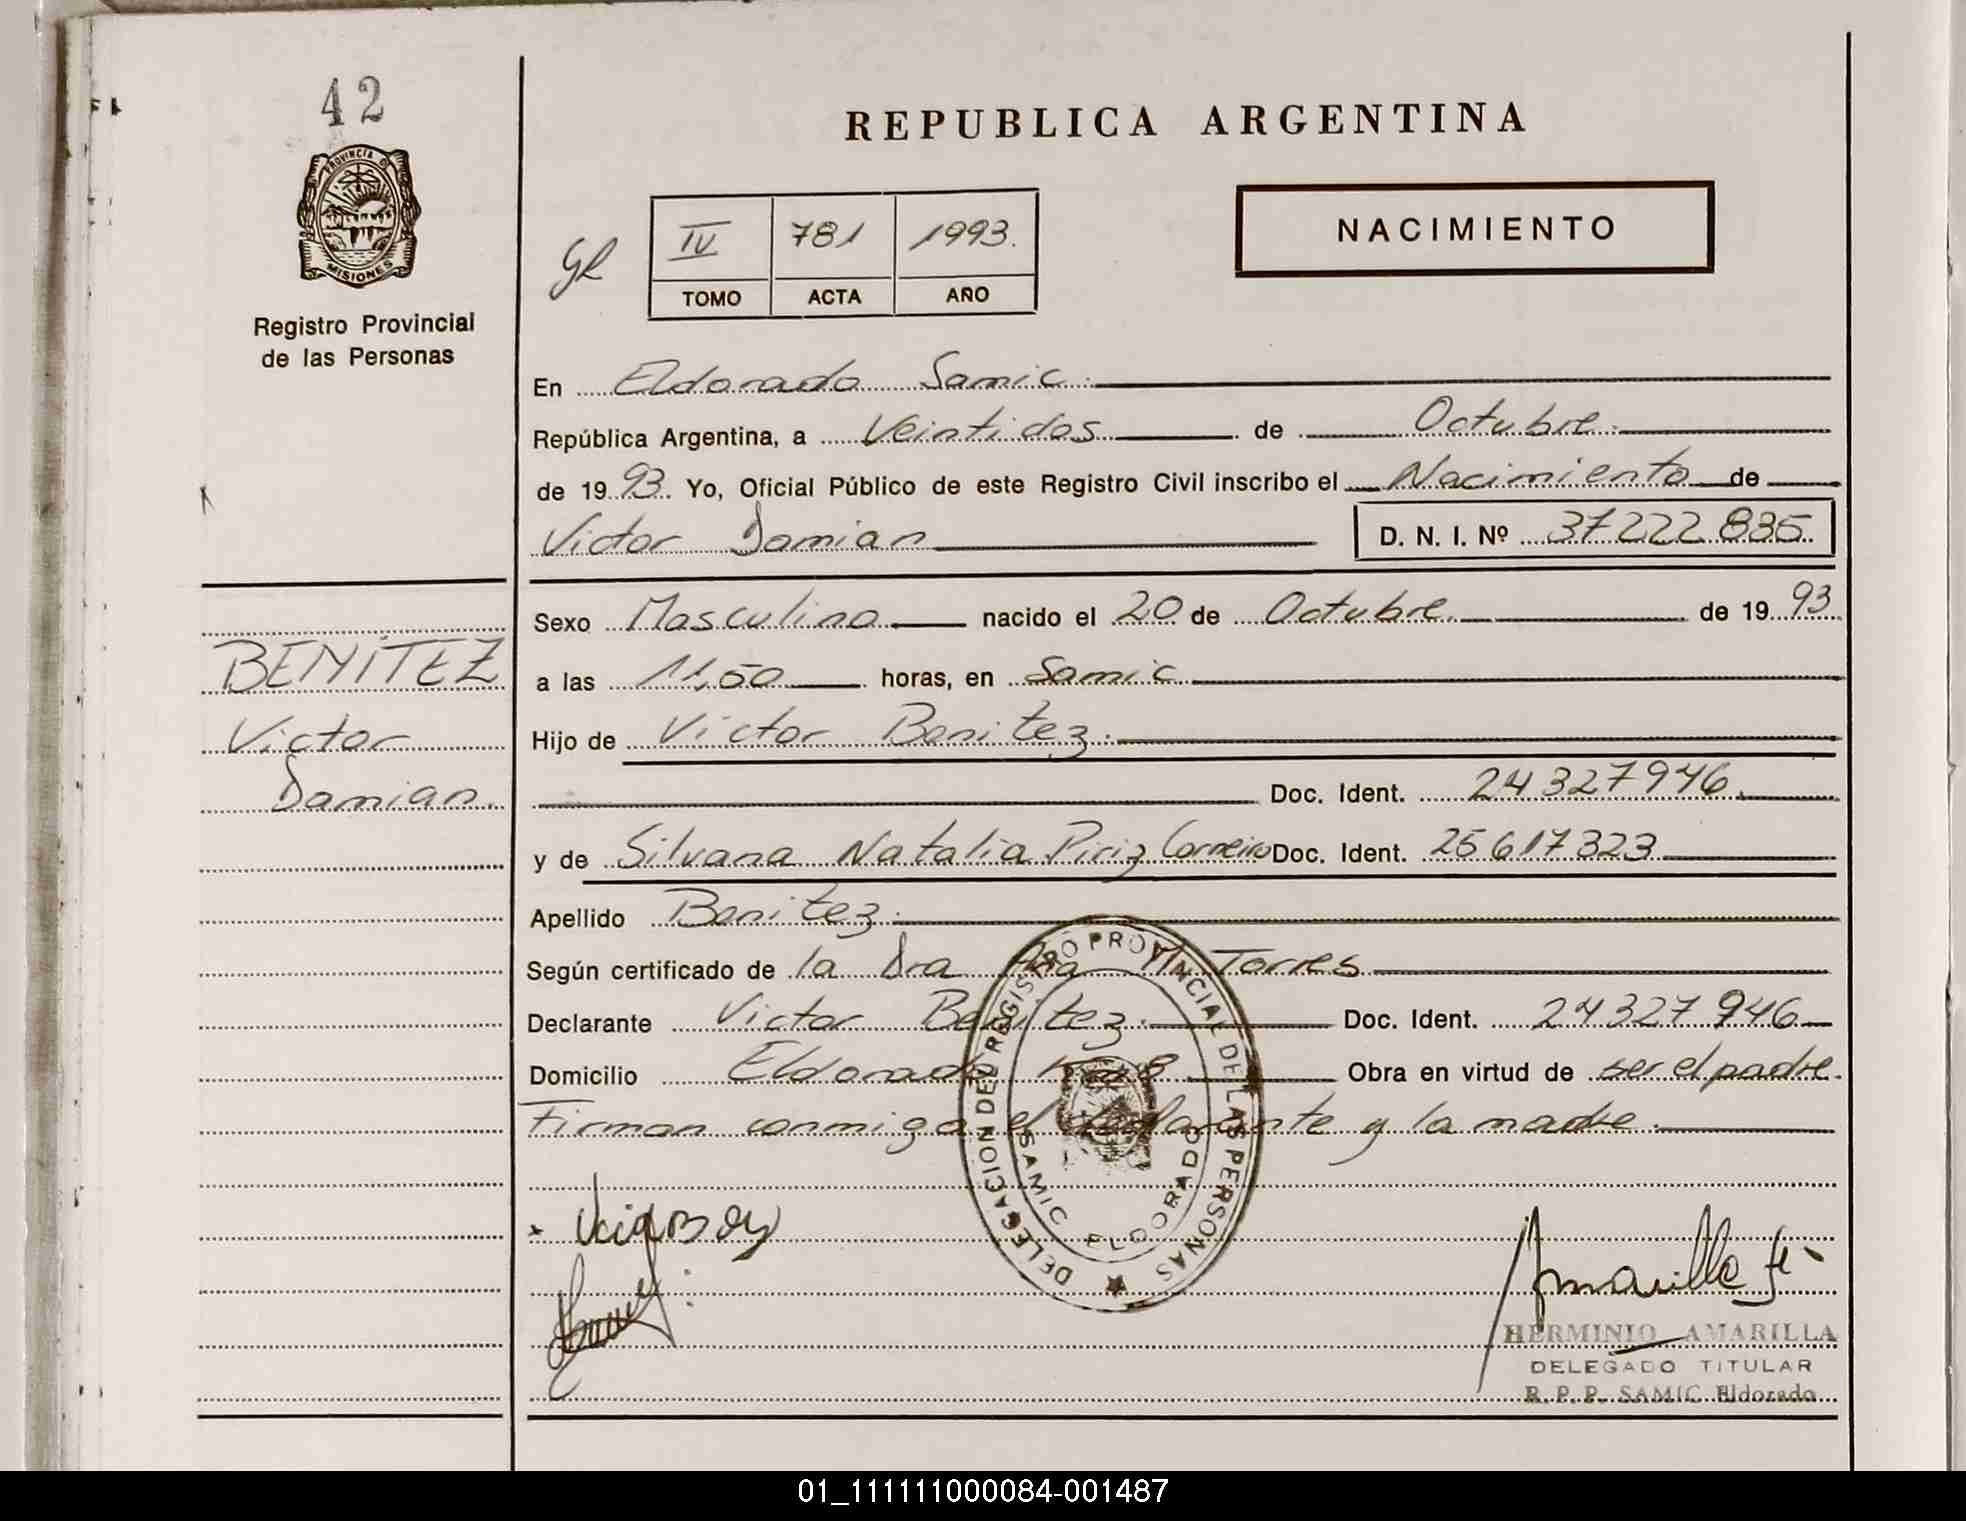 42
PROVINCIA DE
MISIONES
Registro Provincial
de las Personas
REPUBLICA ARGENTINA
NACIMIENTO
IV 781 1993.
TOMO ACTA AÑO
En Eldorado Samic.
República Argentina, a Veintidos de Octubre.
de 1993. Yo, Oficial Público de este Registro Civil inscribo el Nacimiento de
Victor Damian D. N. I. Nº 37222835.
Sexo Masculino nacido el 20 de Octubre. de 1993
a las 11,50 horas, en Samic.
Hijo de Victor Benitez.
Doc. Ident. 24327946.
y de Silvana Natalia Piriz Correiro Doc. Ident. 25617323
Apellido Benitez.
Según certificado de la Dra Ana M. Torres
Declarante Victor Benitez. Doc. Ident. 24327946
Domicilio Eldorado Km 8 Obra en virtud de ser el padre.
Firman conmigo el declarante y la madre.
BENITEZ
Victor
Damian.
DELEGACION DEL REGISTRO PROVINCIAL DE LAS PERSONAS
SAMIC ELDORADO
HERMINIO AMARILLA
DELEGADO TITULAR
R. P. P. SAMIC Eldorado
01_111111000084-001487